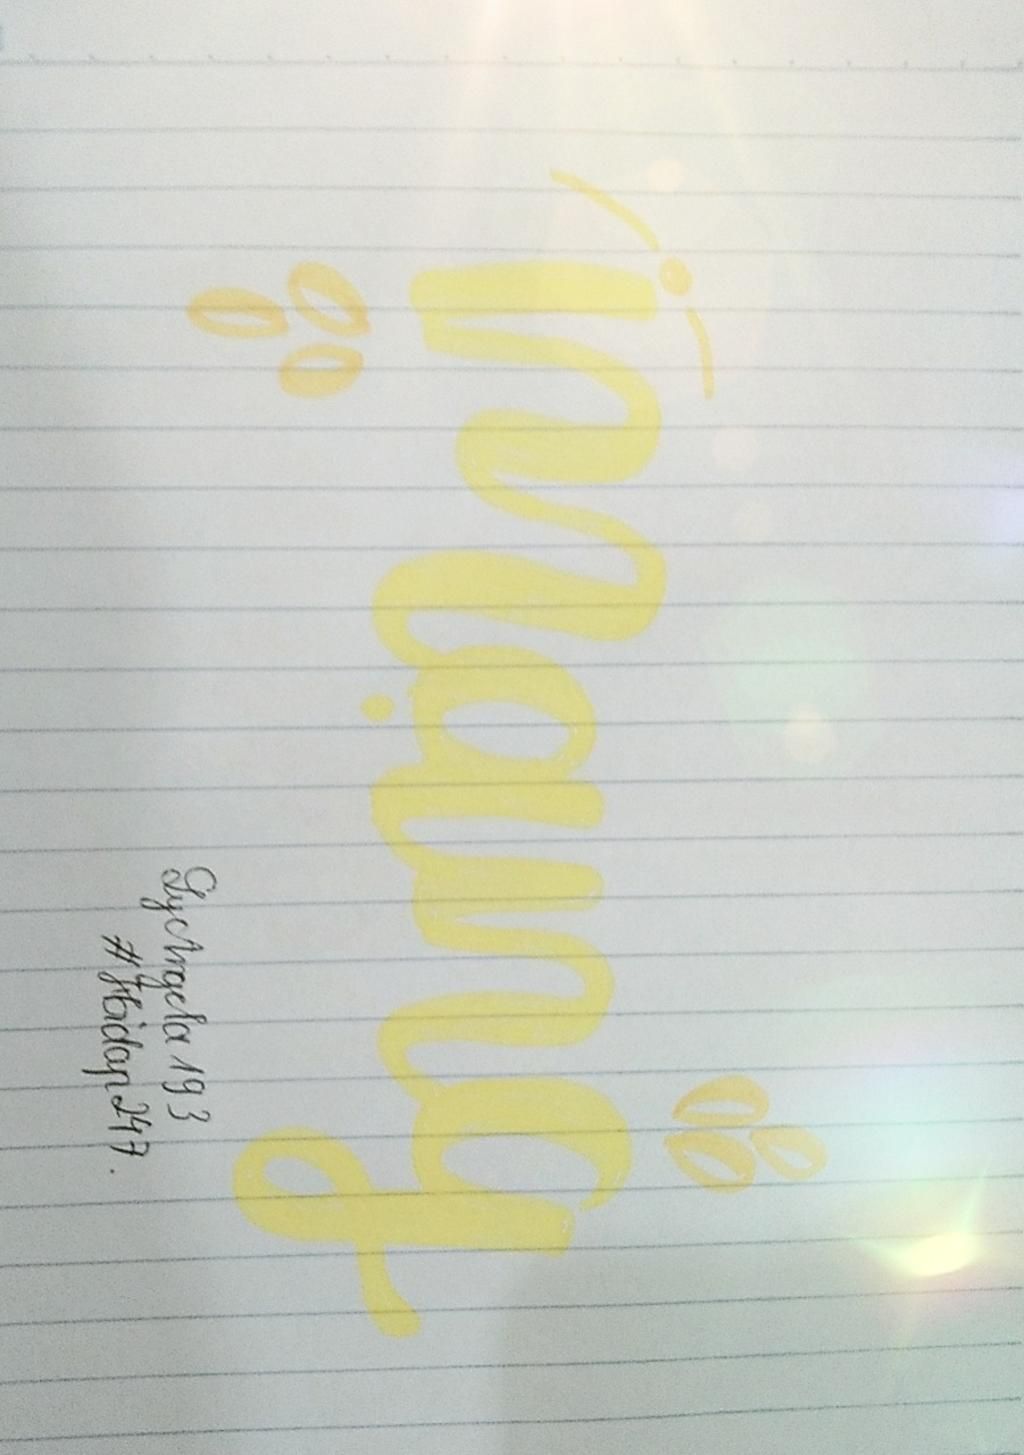 mạng
LyAngela193
#Hoidap247.